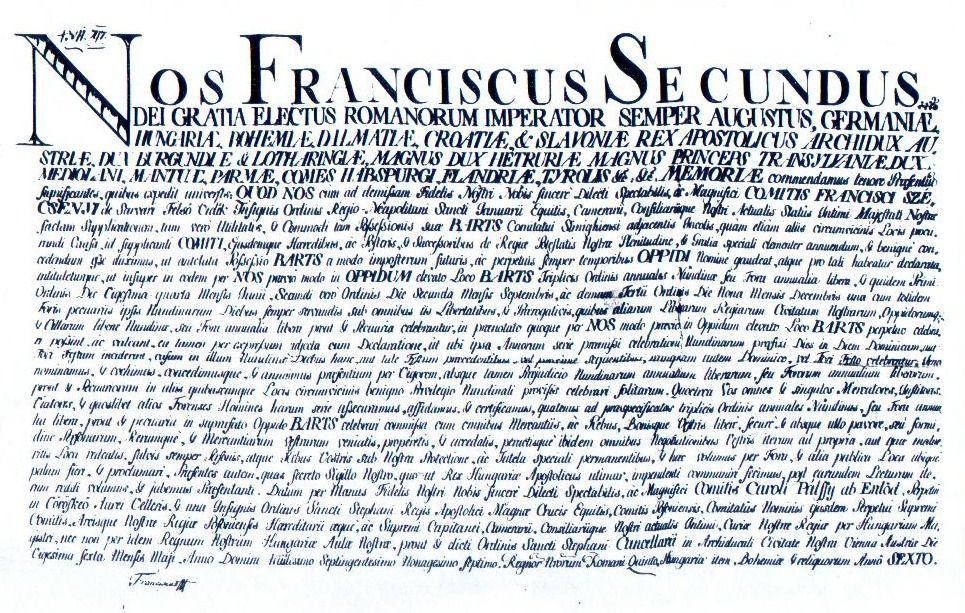 NOS FRANCISCUS SECUNDUS
DEI GRATIA ELECTUS ROMANORUM IMPERATOR SEMPER AUGUSTUS, GERMANIÆ,
HUNGARIÆ, BOHEMIÆ, DALMATIÆ, CROATIÆ, & SLAVONIÆ REX APOSTOLICUS ARCHIDUX AU,
STRIÆ, DUX BURGUNDIÆ & LOTHARINGIÆ, MAGNUS DUX HETRURIÆ MAGNUS PRINCEPS TRANSYLVANIÆ, DUX
MEDIOLANI, MANTUÆ, PARMÆ, COMES HABSPURGI, FLANDRIÆ, TYROLIS &c. &c. MEMORIÆ commendamus tenore Præsentium
significantes, quibus expedit universis; QUOD NOS cum ad demissam Fidelis Nostri Nobis sincere Dilecti Spectabilis, ac Magnifici COMITIS FRANCISCI SZE,
CSENYI de Sárvári Felső Vidék Insignis Ordinis Regio-Neapolitani Sancti Januarii Equitis, Camerarii, Consiliariique Nostri Actualis Status Intimi Majestati Nostræ
factam Supplicationem, tum vero Utilitatis, & Commodi tam Possessionis suæ BARTS Comitatui Simighiensi adjacentis Incolis, quam etiam aliis circumvicinis Locis procu,
randi Causa, id supplicanti COMITI, Ejusdemque Hæredibus, ac Posteris, & Successoribus de Regiæ Potestatis Nostræ Plenitudine, & Gratia speciali clementer annuendum, & benigne con,
cedendum esse duximus, ut antelata Possessio BARTS a modo imposterum futuris, ac perpetuis semper temporibus OPPIDI Nomine gaudeat, atque pro tali habeatur declarata,
intituleturque, ac insuper in eodem per NOS prævio modo in OPPIDUM elevato Loco BARTS Triplicis Ordinis annuales Nundinæ seu Fora annualia libera, & quidem Primi
Ordinis Die Vigesima quarta Mensis Junii, Secundi vero Ordinis Die Secunda Mensis Septembris, ac demum Tertii Ordinis Die Nona Mensis Decembris una cum totidem
Foris pecuariis ipsis Nundinarum Diebus semper servandis sub omnibus iis Libertatibus, & Prærogativis, quibus aliarum Liberarum Regiarum Civitatum Nostrarum, Oppidorumq
& Villarum liberæ Nundinæ, seu Fora annualia libera prout & Pecuaria celebrantur, in prænotato quoque per NOS modo prævio in Oppidum elevato Loco BARTS perpetuo celebra,
ri possint, ac valeant, ea tamen per expressum adjecta cum Declaratione, ut ubi ipsa Annorum serie præmissæ celebrationi Nundinarum præfixi Dies in Diem Dominicam, aut
Fori Festum inciderent, casum in illum Nundinæ Diebus hanc, aut tale Festum præcedentibus, vel proxime sequentibus, nunquam autem Dominico, vel Fori Festo celebrentur. Uno
nominamus, & evehimus, concedimusque, & annuimus præsentium per Vigorem, absque tamen Præjudicio Nundinarum annualium liberarum, seu Fororum annualium liberorum,
prout & Pecuariorum in aliis quibuscunque Locis circumvicinis benigno Privilegio Nundinali provisis celebrari solitarum. Quocirca Vos omnes & singulos Mercatores, Institores,
Viatores, & quoslibet alios Forenses Homines harum serie assecuramus, affidamus, & certificamus, quatenus ad præspecificatas triplicis Ordinis annuales Nundinas, seu Fora annua,
lia libera, prout & pecuaria in suprafato Oppido BARTS celebrari commissa cum omnibus Mercantiis, ac Rebus, Bonisque Vestris libere, secure, & absque ullo pavore, seu formi,
dine Personarum, Rerumque, & Mercantiarum Vestrarum veniatis, properetis, & accedatis, peractisque ibidem omnibus Negotiationibus Vestris iterum ad propria, aut quæ malue,
ritis Loca redeatis, salvis semper Personis, atque Rebus Vestris sub Nostra Protectione, ac Tutela speciali permanentibus, & hæc volumus per Fora, & alia publica Loca ubique
palam fieri, & proclamari, Præsentes autem, quas secreto Sigillo Nostro, quo ut Rex Hungariæ Apostolicus utimur, impendenti communiri fecimus, post earundem Lecturam de,
num reddi volumus, & jubemus Præsentanti. Datum per Manus Fidelis Nostri Nobis sincere Dilecti Spectabilis, ac Magnifici Comitis Caroli Pálffy ab Erdőd, Perpetui
in Vöröskeő, Aurei Velleris, & una Insignis Ordinis Sancti Stephani Regis Apostolici Magnæ Crucis Equitis, Comitis Posoniensis, Comitatus Nominis ejusdem Perpetui Supremi
Comitis, Arcisque Nostræ Regiæ Posoniensis Hæreditarii æque, ac Supremi Capitanei, Camerarii, Consiliariique Nostri actualis Intimi, Curiæ Nostræ Regiæ per Hungariam Ma,
gistri, nec non per idem Regnum Nostrum Hungariæ Aulæ Nostræ, prout & dicti Ordinis Sancti Stephani Cancellarii in Archiducali Civitate Nostra Vienna Austriæ Die
Vigesima sexta Mensis Maji, Anno Domini Millesimo Septingentesimo Nonagesimo septimo. Regnorum Nostrorum Romani Quinto, Hungariæ item, Bohemiæ & reliquorum Anno SEXTO.
Franciscus